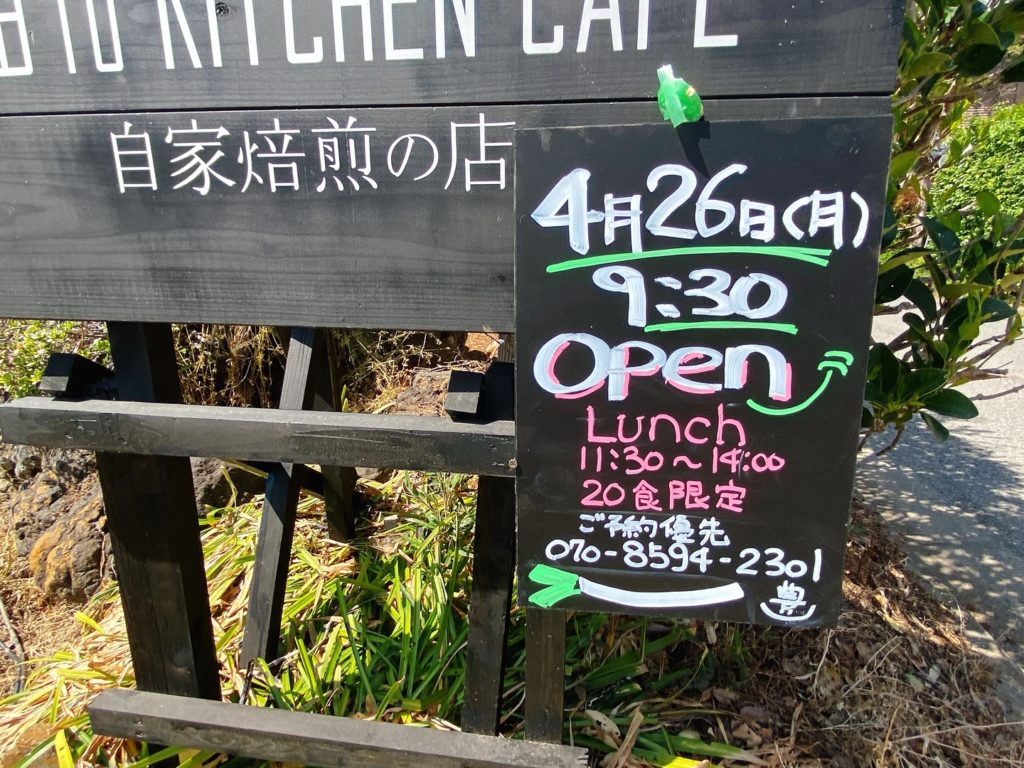 KITCHEN CAFE
自家焙煎の店
4月26日(月)
9:30
open
Lunch
11:30～14:00
20食限定
ご予約優先
070-8594-2301